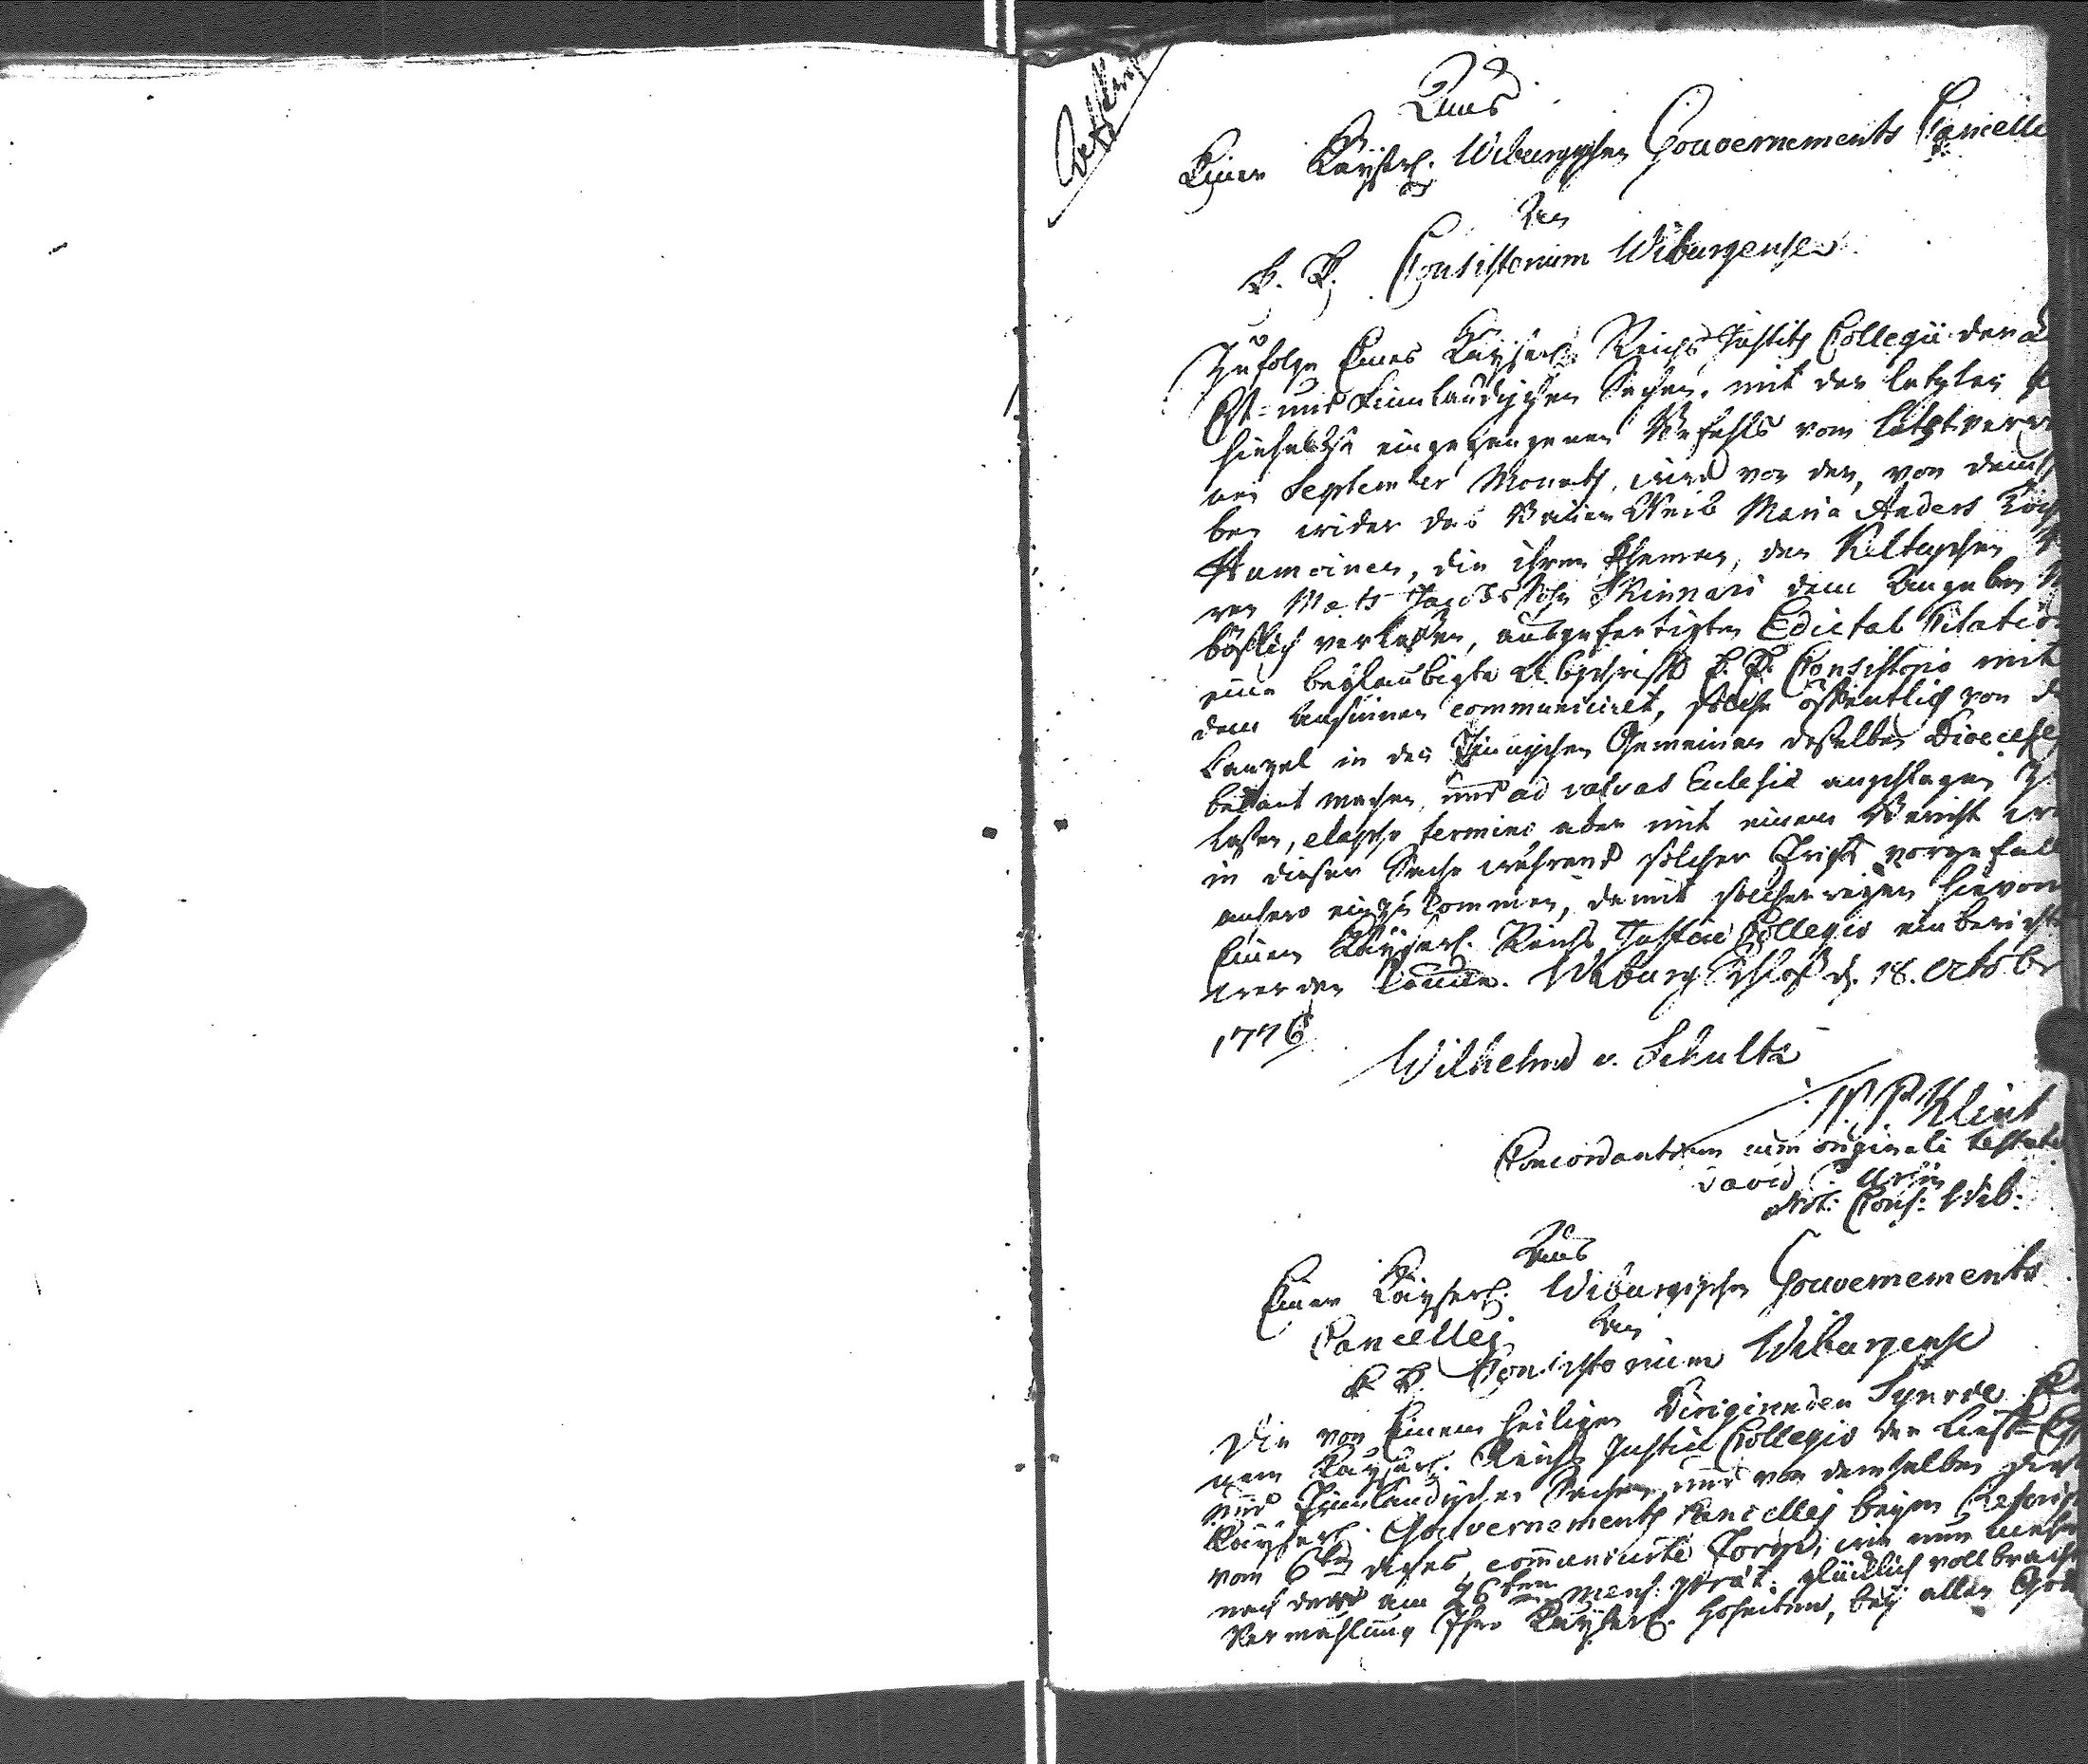 Aus
Einer Kayserl. Wiburgschen Gouvernements Cancelle
An
E. E. Consistorium Wiburgense
Zufolge Eines Kayserl. Reichs Justitz Collegii der
Ost- und Finnländischen Sachen, mit der letzten
hieselbst eingegangenen Befehls vom letztverwi
nen September Monaths, wird von der, von demsel
ben wider das Bauer Weib Maria Anders Toch
Hamoinen, die ihren Ehemann, den Keltischen
ren Mats Jacobs Sohn Skinnari dem Angeben
böslich verlassen, ausgefertigten Edictal Citation
eine beglaubigte Abschrifft E. E. Consistorio mit
dem Ansinnen communiciret, solche öffentlich von d
Canzel in den Finnischen Gemeinen desselben Dioecese
bekant machen und ad valvas Eclesiæ anschlagen z
laßen, elapso termino aber mit einem Bericht
in dieser Sache während solcher Frist vorgefall
anhero einzukommen, damit solcherwegen hievon
Einem Kayserl. Reichs Justice Collegio einbericht
werden könne. Wiburg Schloß d. 18. Octobr
1776.
Wilhelm v. Schultz
Klint
Concordantiam cum originali testatur
David
Not: Cons: Wib:
Aus
Einer Kayserl. Wiburgischen Gouvernements
Cancelley An
E. E. Consistorium Wiburgense
Die von Einem heiligen Dirigirenden Synode
nem Kayserl. Reichs Justice Collegio der Lief- Ehst
und Finnländischen Sachen und von demselben
Kayserl. Gouvernements Cancelley beym Rescript
vom 6ten dieses, communicirte Form, wie nun
nach der am 26ten mens: præt: glücklich vollbracht
Vermählung Ihro Kayserl. Hoheiten, bey allen